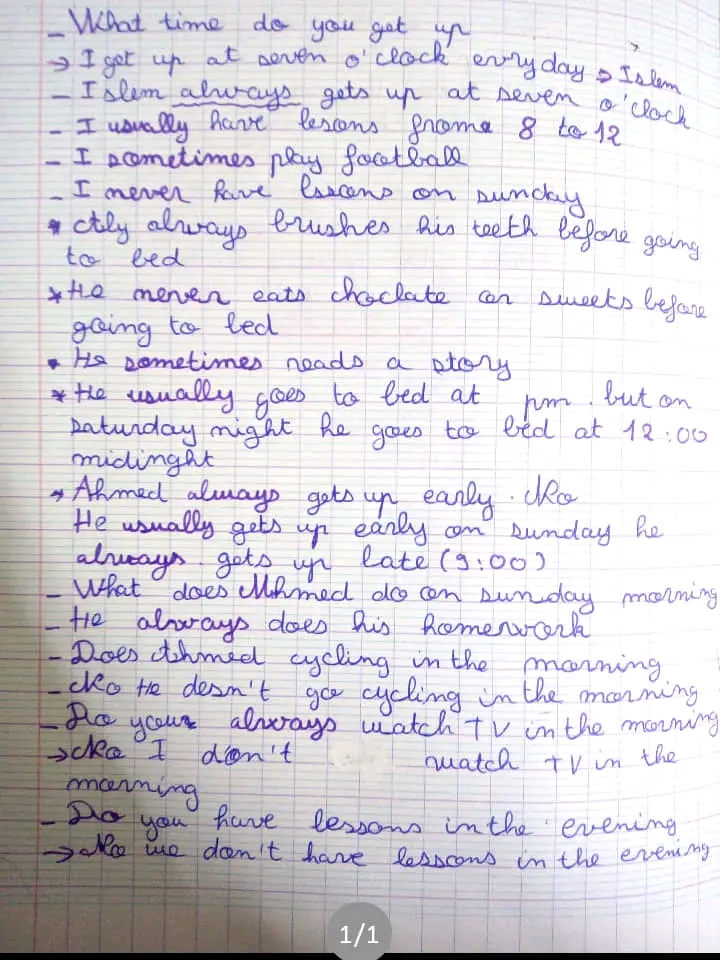 - What time do you get up
→ I get up at seven o'clock everyday → Islem
- Islem always gets up at seven o'clock
- I usually have lesons frome 8 to 12
- I sometimes play football
- I never have lssons on sunday
* always brushes his teeth before going
to bed
* He never eats choclate or sweets before
going to bed
• He sometimes reads a story
* He usually goes to bed at pm. but on
saturday night he goes to bed at 12:00
midinght
* Ahmed always gets up early. No
He usually gets up early on sunday he
always. gets up late (9:00)
- What does Ahmed do on sunday morning
- He always does his homework
- Does Ahmed cycling in the morning
- No He desn't go cycling in the morning
- Do your always watch TV in the morning
→ No I don't watch TV in the
morning
- Do you have lessons in the evening
→ No we don't have lessons in the evening
1/1